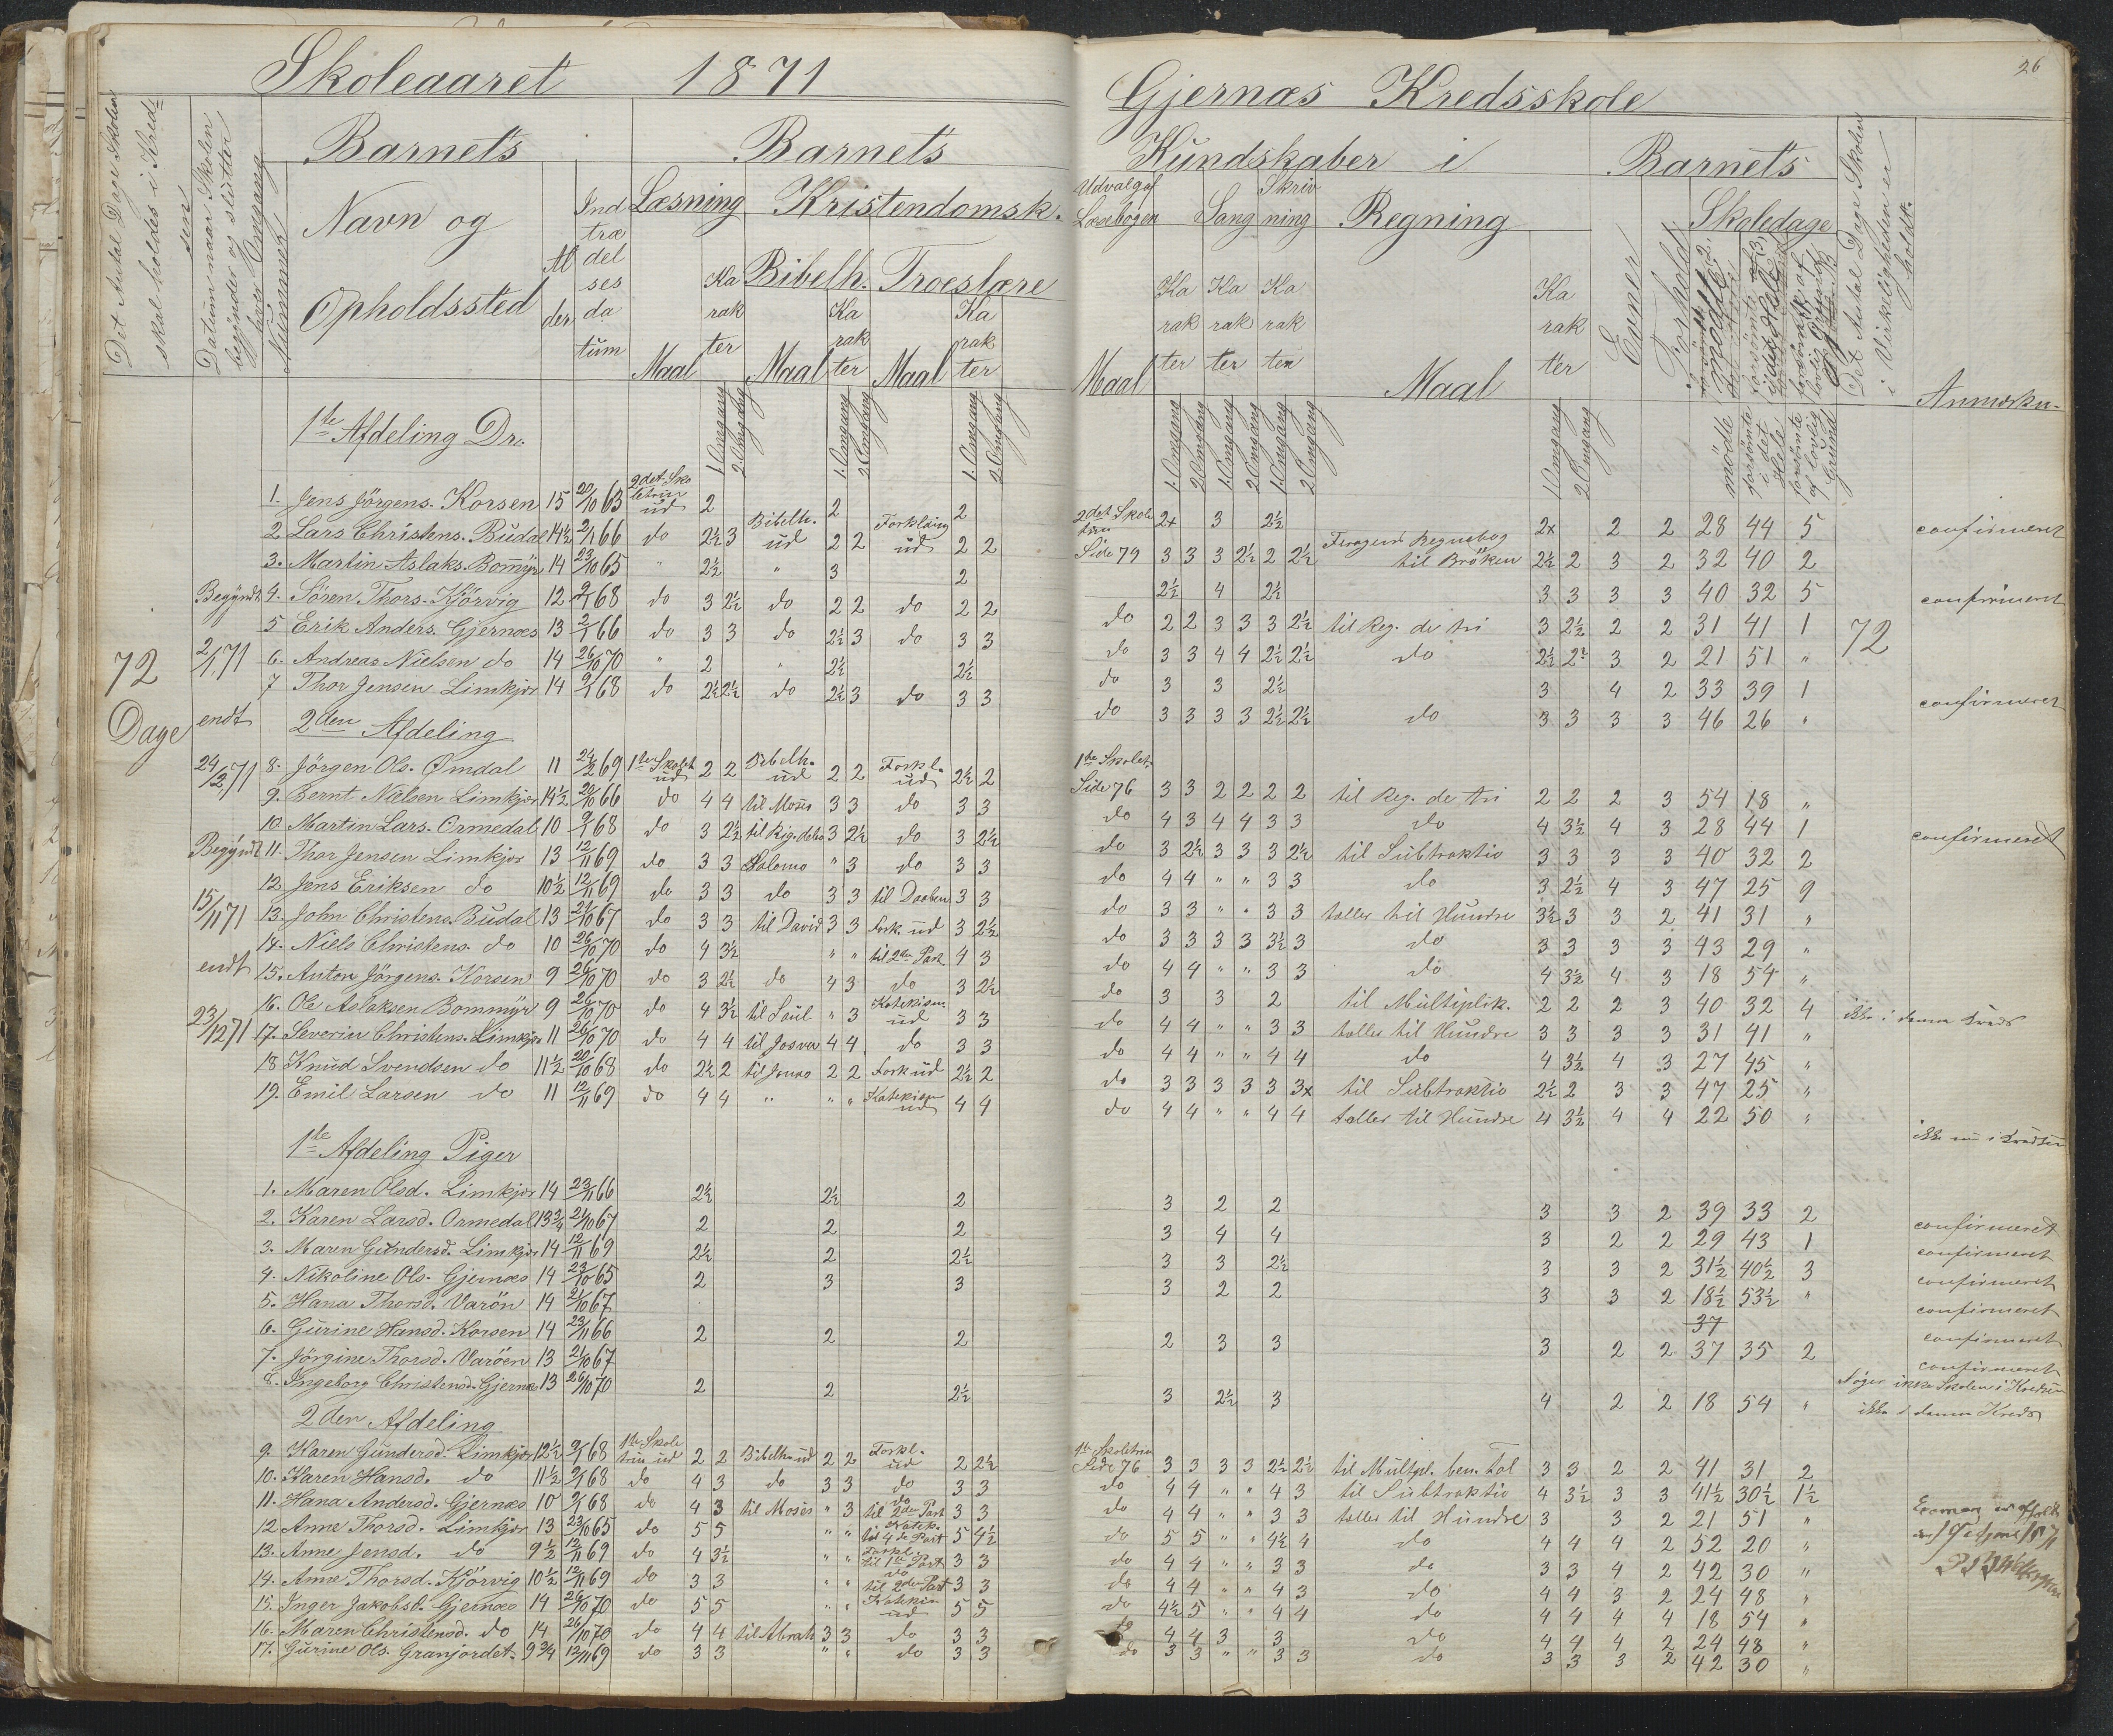 26
Skoleaaret 1871 Gjernæs Kredsskole
Det Antal Dage Skolen skal holdes i Kredsen
Datum naar Skolen begynder og slutter hver Omgang
Nummer
Barnets
Navn og Opholdssted
Alder
Indtrædelsesdatum
Barnets Kundskaber i
Læsning Kristendomsk.
Bibelh. Troeslære
Maal Karakter Maal Karakter Maal Karakter
1. Omgang 2. Omgang 1. Omgang 2. Omgang 1. Omgang 2. Omgang
Udvalg af Læsebogen Sang Skrivning Regning
Maal Karakter Karakter Karakter Maal Karakter
1. Omgang 2. Omgang 1. Omgang 2. Omgang 1. Omgang 2. Omgang 1. Omgang 2. Omgang
Barnets
Evner
Forhold
Skoledage
mödte
forsömte i det Hele
forsömte af lovlig Grund
Det Antal Dage Skolen i Virkeligheden er holdt.
Anmærkn.
72 Dage
Begyndt 2/1 71 endt 24/2 71
Begyndt 15/11 71 endt 23/12 71
72
1ste Afdeling Dr.
1. Jens Jörgens. Korsen 15 20/10 63 2det Skoletrin ud 2 2 2 2det Skoletrin 2x 3 2½ 2x 2 2 28 44 5 confirmeret
2. Lars Christens. Budal 14½ 2/1 66 do 2½ 3 Bibelh. ud 2 2 Forklaring ud 2 2 Side 79 3 3 3 2½ 2 2½ Regnebog til Bröken 2½ 2 3 2 32 40 2
3. Martin Aslaks. Bommyr 14 23/10 65 " 2½ " 3 2 2½ 4 2½ 3 3 3 3 40 32 5 confirmeret
4. Sören Thors. Kjörvig 12 9/1 68 do 3 2½ do 2 2 do 2 2 do 2 2 3 3 3 2½ til Reg. de tri 3 2½ 2 2 31 41 1
5 Erik Anders. Gjernæs 13 2/1 66 do 3 3 do 2½ 3 do 3 3 do 3 3 4 4 2½ 2½ do 2½ 2½ 3 2 21 51 "
6. Andreas Nielsen do 14 26/10 70 " 2 " 2½ 2½ do 3 3 2½ 3 4 2 33 39 1 confirmeret
7 Thor Jensen Limkjær 14 9/1 68 do 2½ 2½ do 2½ 3 do 3 3 do 3 3 3 3 2½ 2½ do 3 3 3 3 46 26 "
2den Afdeling
8. Jörgen Ols. Ømdal 11 24/2 69 1ste Skolet. ud 2 2 Bibelh. ud 2 2 Forkl. ud 2½ 2 1ste Skolet. Side 76 3 3 2 2 2 2 til Reg. de tri 2 2 2 3 54 18 "
9. Bernt Nielsen Limkjær 14½ 20/10 66 do 4 4 til Moses 3 3 do 3 3 do 4 3 4 4 3 3 do 4 3½ 4 3 28 44 1 confirmeret
10. Martin Lars. Ormedal 10 9/1 68 do 3 2½ til Rig. deles 3 2½ do 3 2½ do 3 2½ 3 3 3 2½ til Subtraktio 3 3 3 3 40 32 2
11. Thor Jensen Limkjær 13 12/11 69 do 3 3 Salomo " 3 do 3 3 do 4 4 " " 3 3 do 3 2½ 4 3 47 25 9
12. Jens Eriksen do 10½ 12/11 69 do 3 3 do 3 3 til Daaben 3 3 do 3 3 " " 3 3 tæller til Hundre 3½ 3 3 2 41 31 "
13. John Christens. Budal 13 21/10 67 do 3 3 til David 3 3 Fork. ud 3 2½ do 3 3 3 3 3½ 3 do 3 3 3 3 43 29 "
14. Niels Christens. do 10 26/10 70 do 4 3½ " " til 2den Part. 4 3 do 4 4 " " 3 3 do 4 3½ 4 3 18 54 "
15. Anton Jörgens. Korsen 9 26/10 70 do 3 2½ do 4 3 do 3 2½ do 3 3 2 til Multiplik. 2 2 2 3 40 32 4 ikke i denne Kreds
16. Ole Aslaksen Bommyr 9 26/10 70 do 4 3½ til Saul " 3 Katekism. ud 3 3 do 4 4 " " 3 3 tæller til Hundre 3 3 3 3 31 41 "
17. Severin Christens. Limkjær 11 26/10 70 do 4 4 til Josva 4 4 do 3 3 do 4 4 " " 4 4 do 4 3½ 4 3 27 45 "
18. Knud Svendsen do 11½ 20/10 68 do 2½ 2 til Jonas 2 2 Fork ud 2½ 2 do 3 3 3 3 3 3x til Subtraktio 2½ 2 3 3 47 25 "
19. Emil Larsen do 11 12/11 69 do 4 4 " " " Katekism ud 4 4 do 4 4 " " 4 4 tæller til Hundre 4 3½ 4 4 22 50 " ikke nu i Kredsen
1ste Afdeling Piger
1. Maren Olsd. Limkjær 14 23/11 66 2½ 2½ 2 3 2 2 3 3 2 39 33 2 confirmeret
2. Karen Larsd. Ormedal 13¾ 21/10 67 2 2 2 3 4 4 3 2 2 29 43 1 confirmeret
3. Maren Gundersd. Limkjær 14 12/11 69 2½ 2 2½ 3 3 2½ 3 3 2 31½ 40½ 3 confirmeret
4. Nikoline Ols. Gjernæs 14 23/10 65 2 3 3 3 2 2 3 3 2 18½ 53½ " confirmeret
5. Hana Thorsd. Varöen 14 21/10 67 37 confirmeret
6. Gurine Hansd. Korsen 14 23/11 66 2 2 2 2 3 3 3 2 2 37 35 2 confirmeret
7. Jörgine Thorsd. Varöen 13 21/10 67 Söger ikke Skolen i Kredsen
8. Ingeborg Christensd. Gjernæs 13 26/10 70 2 2 2½ 3 2½ 3 4 2 2 18 54 " ikke i denne Kreds
2den Afdeling
9. Karen Gundersd. Limkjær 12½ 9/1 68 1ste Skoletrin ud 2 2 Bibelh. ud 2 2 Forkl. ud 2 2½ 1ste Skoletrin Side 76 3 3 3 3 2½ 2½ til Multpl. ben. Tal 3 3 2 2 41 31 2
10. Karen Hansd. do 11½ 9/1 68 do 4 3 do 3 3 do 3 3 do 4 4 " " 4 3 til Subtraktio 4 3½ 3 3 41½ 30½ 1½
11. Hana Andersd. Gjernæs 10 9/1 68 do 4 3 til Moses " 3 do til 2den Part 3 3 do 4 4 " " 3 3 tæller til Hundre 3 3 2 21 51 "
12 Anne Thorsd. Limkjær 13 23/10 65 do 5 5 " " Katek. til 4de Part 5 4½ do 5 5 " " 4½ 4 do 4 4 4 2 52 20 "
13. Anne Jensd. do 9½ 12/11 69 do 4 3½ " " Forkl. til 1ste Part 3 3 do 4 4 " " 3 3 do 3 3 4 2 42 30 "
14. Anne Thorsd. Kjörvig 10½ 12/11 69 do 3 3 " " do til 2den Part 3 3 do 4 4 " " 4 3 do 4 4 3 2 24 48 "
15. Inger Jakobsd. Gjernæs 14 26/10 70 do 5 5 " " Katekis. ud 5 5 do 4½ 5 " " 4 4 do 4 4 4 4 18 54 "
16. Maren Christensd. do 14 26/10 70 do 4 4 til Abrah. 3 3 do 3 3 do 4 4 3 3 do 4 4 4 2 24 48 "
17. Gurine Ols. Granjordet. 9¾ 12/11 69 do 3 3 " " do 3 3 do 3 3 " " 3 3 do 3 3 3 2 42 30 "